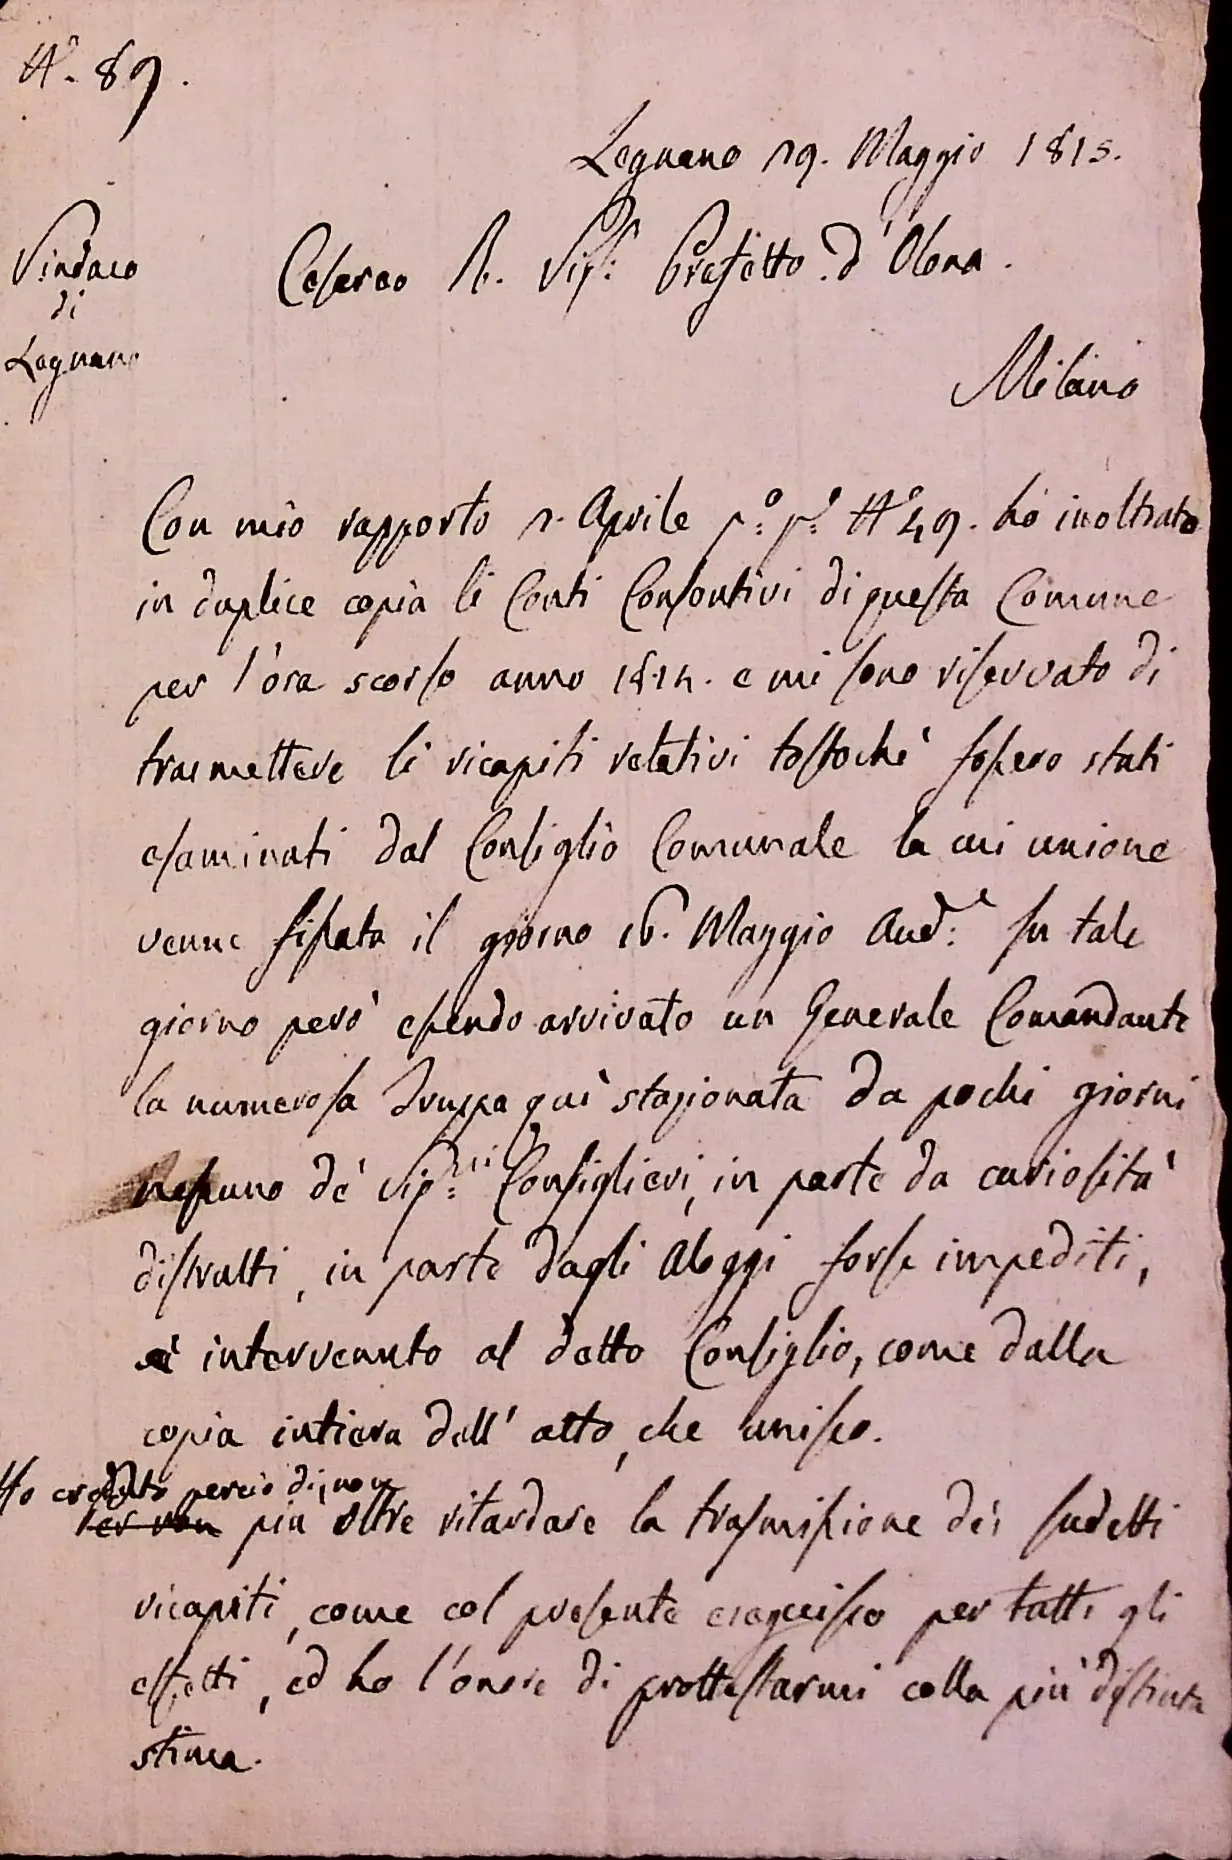 N.° 89.
Legnano 19. Maggio 1815.
Sindaco
di
Legnano
Cesareo R. Sig.r Prefetto d'Olona.
Milano
Con mio rapporto 1. Aprile p.° p.° N.° 49. ho inoltrato
in duplice copia li Conti Consontivi di questa Comune
per l'òra scorso anno 1814. e mi sono riservato di
trasmettere li ricapiti relativi tostochè fossero stati
esaminati dal Consiglio Comunale la cui unione
venne fissata il giorno 16. Maggio And.e In tale
giorno però essendo arrivato un Generale Comandante
la numerosa Truppa quì stazionata da pochi giorni
nessuno dè Sig.ri Consiglieri, in parte da curiosità
distratti, in parte dagli Aloggi forse impediti,
è intervenuto al detto Consiglio, come dalla
copia intiera dell'atto, che unisco.
Ho creduto perciò di non
Per non più oltre ritardare la trasmissione dei sudetti
ricapiti, come col presente eseguisco per tutti gli
effetti, ed ho l'onore di prottestarmi colla più distinta
stima.